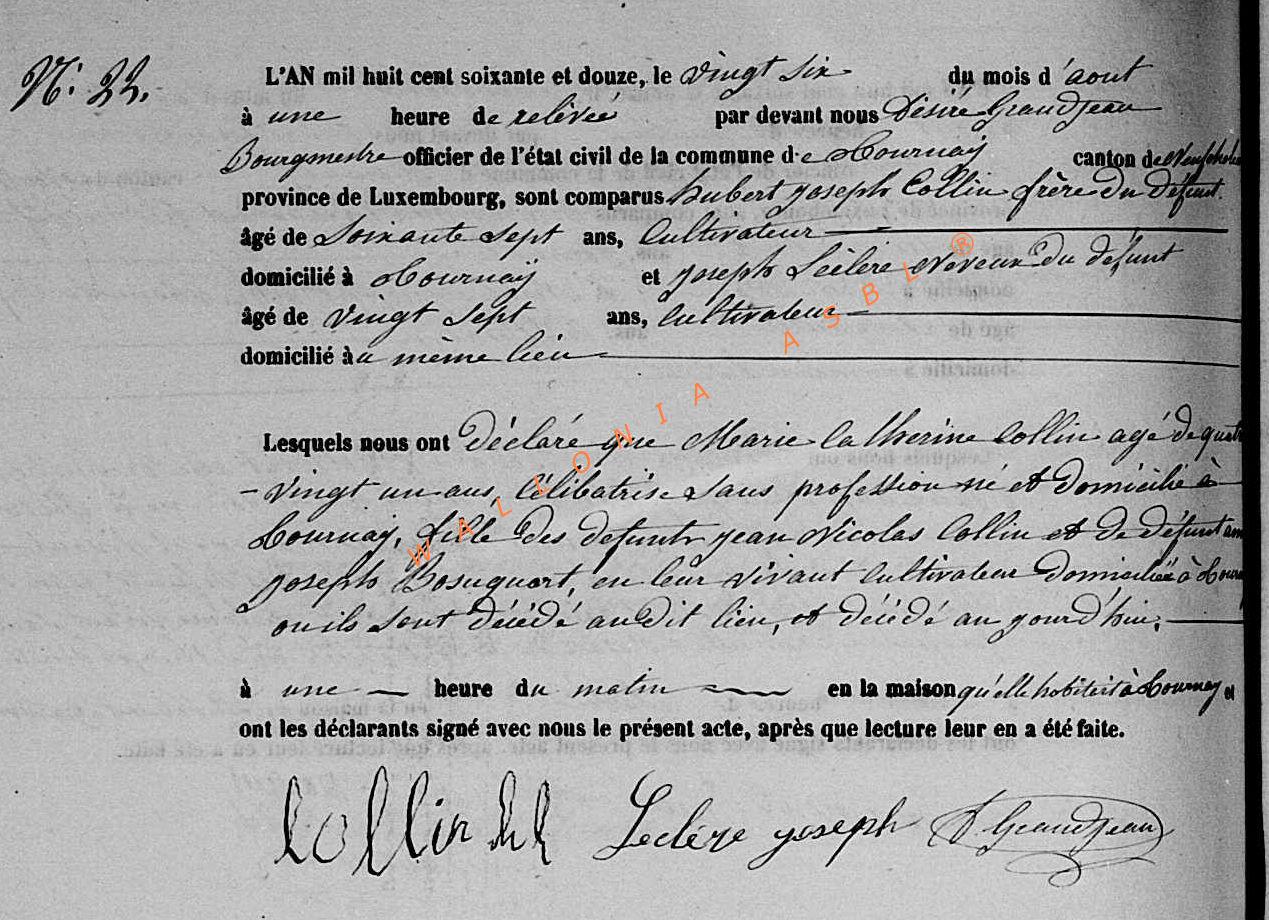 N: 22.
L'AN mil huit cent soixante et douze, le vingt six du mois d'aout
à une heure de relévée par devant nous Désiré Grandjean
Bourgmestre officier de l'état civil de la commune de Tournay canton de
province de Luxembourg, sont comparus hubert joseph Collin frère du défunt.
âgé de Soixante Sept ans, Cultivateur
domicilié à Tournay et joseph Leclère Neveux du défunt
âgé de Vingt Sept ans, Cultivateur
domicilié au même lieu
Lesquels nous ont Déclaré que Marie Catherine Collin agé de quatre
- Vingt un ans, Célibatrise Sans profession né et domicilié à
Tournay, fille des defunts jean Nicolas Collin et de défunt
joseph en leur vivant Cultivateur Domiciliée à
ou ils Sont décédé au Dit lieu, et décédé au jourd'hui.
à une heure du matin en la maison qu'elle habiteit à Tournay et
ont les déclarants signé avec nous le présent acte, après que lecture leur en a été faite.
Collin Leclère joseph D Grandjean
WALLONIA ASBL ®